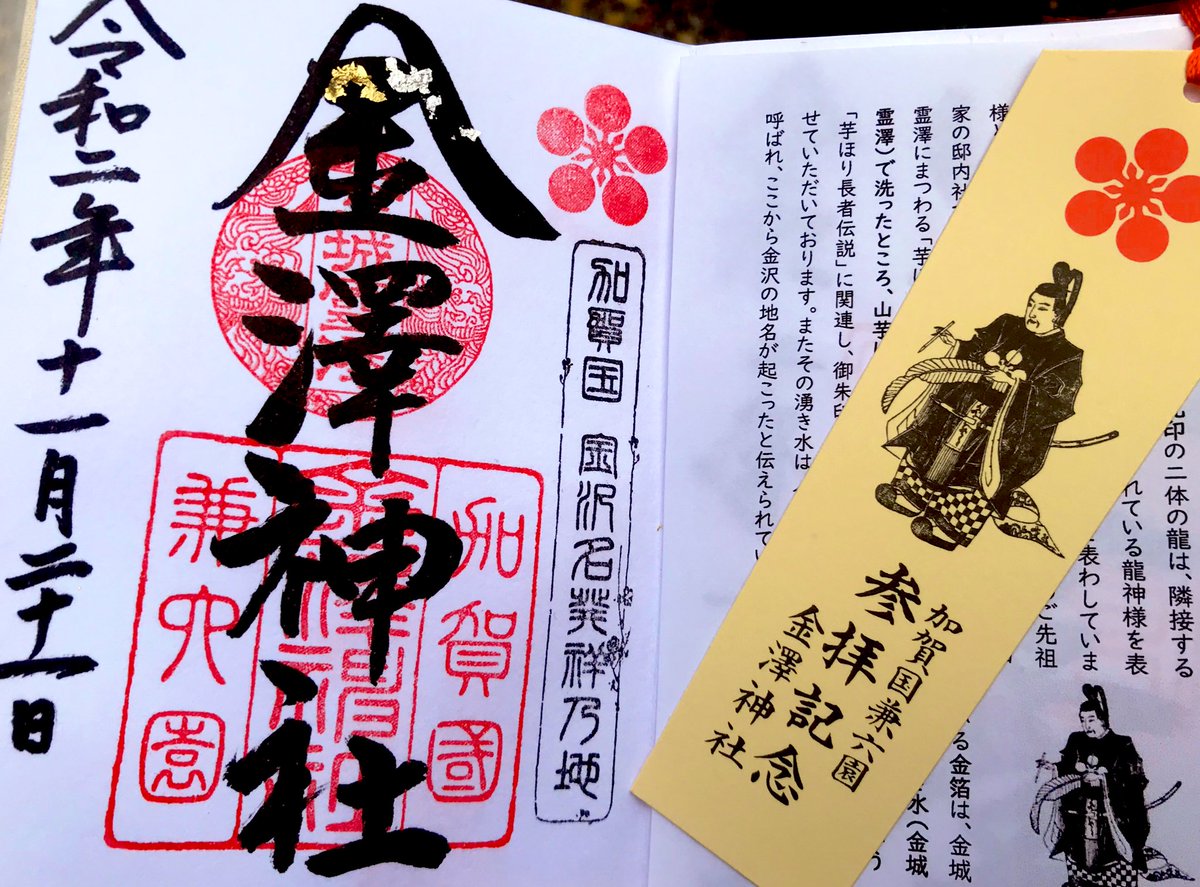 加賀国 金沢名発祥乃地
金澤神社
加賀國
金澤神社
兼六園
令和二年十一月二十一日
加賀国兼六園
参拝記念
金澤神社
印の二体の龍は、隣接する
れている龍神様を表
表わしていま
ご先祖
る金箔は、金城
水(金城
う
様
家の邸内社
霊澤にまつわる「芋
霊澤)で洗ったところ、山芋
「芋ほり長者伝説」に関連し、御朱
せていただいております。またその湧き水は
呼ばれ、ここから金沢の地名が起こったと伝えられて